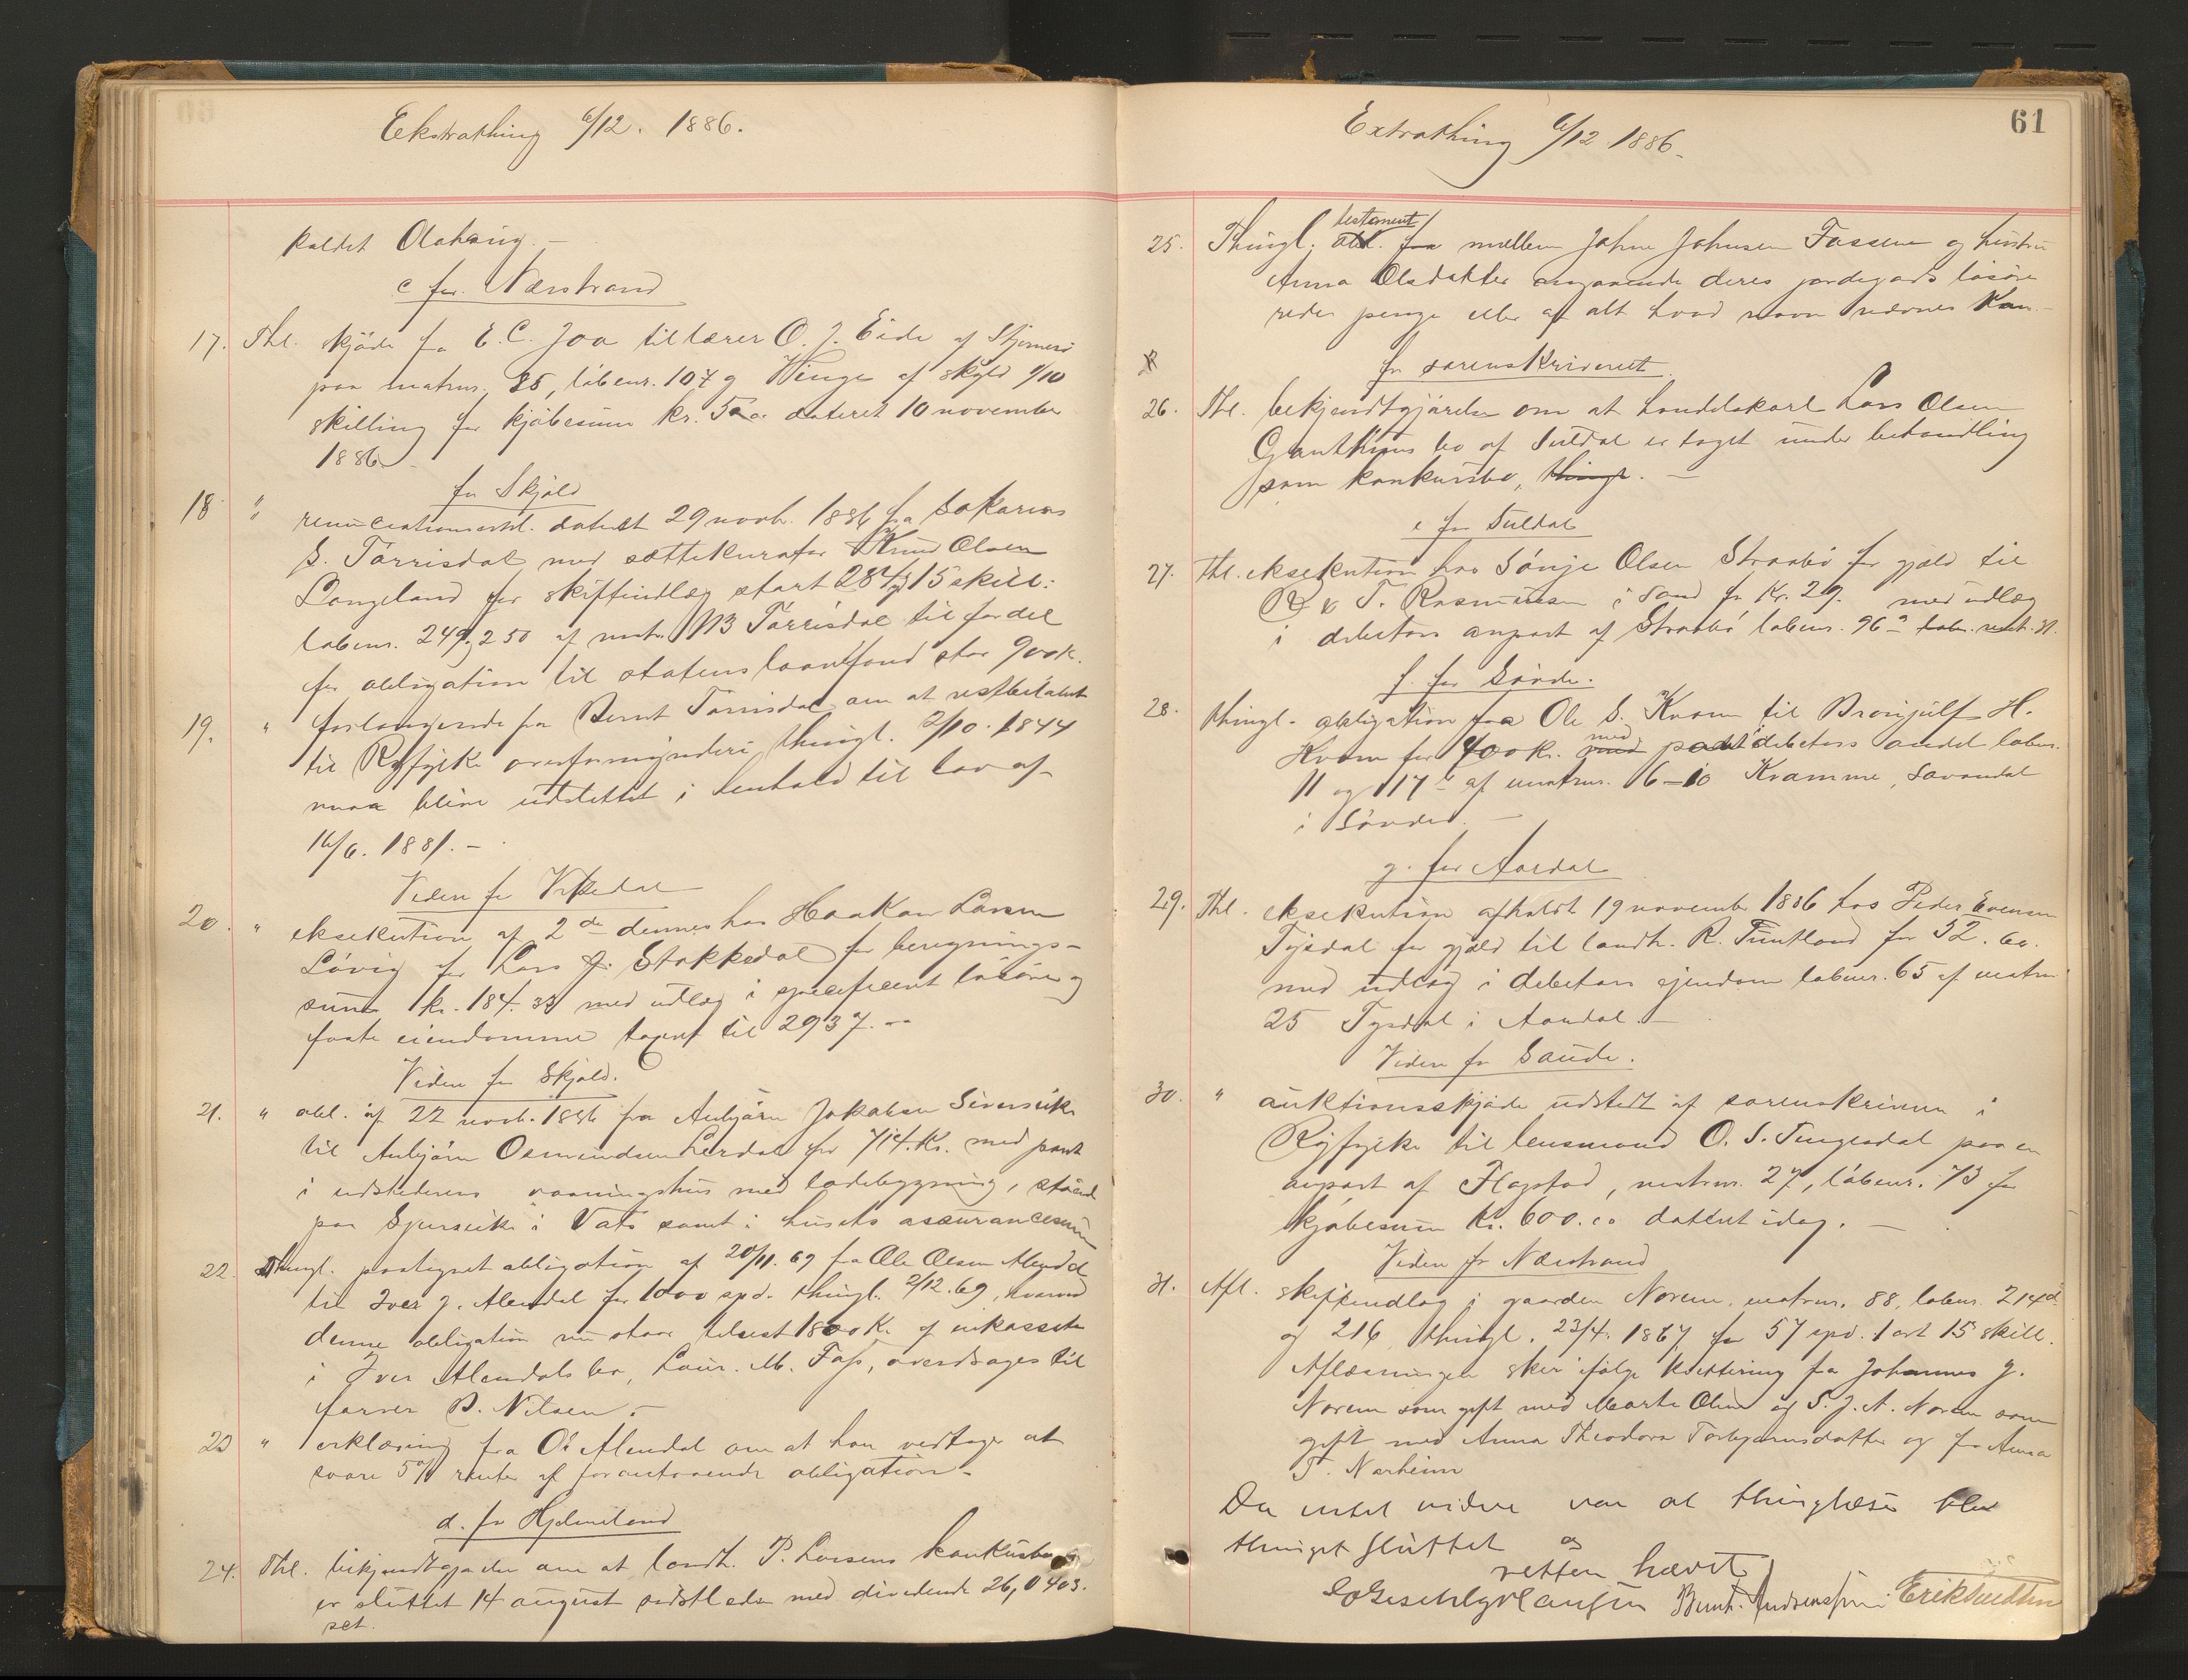 Eekstrathing 6/12. 1886.
kaldet Olahaug. -
c for Nærstrand
17. Thl. skjøde fra E. C. Joa til lærer O. J. Eide af Stjernerø
paa matrnr. 85, løbenr. 107 g Winge af skyld 1/10
skilling for kjøbesum kr. 500 dateret 10 november
1886.
for Skjold
18 " renunciationserkl. dateret 29 novb. 1886 fra Sakarias
S. Tørrisdal med sættekurator Knud Olsen
Langeland for skifteudlæg stort 284 15 skill:
løbenr. 249 og 250 af matr. 113 Tørrisdal til fordel
for obligation til statens laanefond stor 900 k.
19. " forlangende fra Bernt Tørrisdal om at restbeløbet
til Ryfylke overformynderi thingl. 2/10. 1844
maa blive udslettet i henhold til lov af
16/6. 1881. -
Videre for Vikedal
20. " eksekution af 2de dennes hos Haakon Larsen
Løvig for Lars J. Stakkedal for beregnings-
sum kr. 184.33 med udlæg i specificeret løsøre og
faste eiendomme taxeret til 2937. -
Videre for Skjold.
21. " obl. af 22 novb. 1886 fra Anbjørn Jakobsen
til Anbjørn Osmundsen Lerdal for 714 Kr. med pant
i udstederens vaaningshus med ladebygning, staaende
paa i Vats samt i husets assurancesum
22. Thingl. paategnet obligation af 20/11. 69 fra Ole Olsen
til Iver J. Alendal for 1000 spd. thingl. 2/12. 69, hvorved
denne obligation nu staar tilrest 1800 Kr. af inkassator
i Iver Alendals bo, Laur. M. Fass, overdrages til
farver B. Nilsen. -
23 " erklæring fra O. Alendal om at han vedtager at
svare 5% renter af foranstaaende obligation. -
d. for Hjelmeland
24. Thl. bekjendtgjørelse om at landh. P. Larsens konkursbo
er sluttet 14 august sidstleden med dividende 26,0403.
pct.
Extrathing 6/12 1886.
61
25. Thingl. testament mellem Johne Johnsen Fassene og hustru
Anna Olsdatter angaaende deres jordegods løsøre
rede penge eller af alt hvad navn nævnes kan. -
for sorenskriveriet
26. Thl. bekjendtgjørelse om at handelskarl Lars Olsen
bo af Suldal er taget under behandling
som konkursbo, thingl. -
e for Suldal
27. Thl. eksekution hos Sønje Olsen Straabø for gjæld til
R & T. Rasmussen i Sand for Kr. 29. med udlæg
i debitors anpart af Straabø løbenr. 96a
f. for Søvde.
28. thingl. obligation fra Ole S. Kvam til Bronjulf H.
Kvam for 400 kr. med pant i debitors andel løbnr.
11 og 117 af matrnr. 6-10 Kvamme, Sauvdal
i Søvde. -
g. for Aardal
29. Thl. eksekution afholdt 19 november 1886 hos Peder Evensen
Tysdal for gjæld til landh. R. Funtland for 52.60.
med udlæg i debitors ejendom løbenr. 65 af matrnr
25 Tysdal i Aardal. -
Videre for Saude.
30. " auktionsskjøde udstedt af sorenskriveren i
Ryfylke til lensmand O. S. Tengesdal paa en
anpart af Flogstad, matrnr. 27, løbenr. 73 for
kjøbesum Kr. 600.00 dateret idag. -
Videre for Nærstrand
31. Afl. skifteudlæg i gaarden Norem, matrnr. 88, løbenr. 214d
og 216, thingl. 23/4. 1867, for 57 spd. 1 ort 15 skill.
Aflæsningen sker ifølge kvittering fra Johannes J.
Norem som gift med Marta Oline og S. J. A. Norem som
gift med Anna Theodora Torbjørnsdatter og fra Anna
T. Norheim
Da intet videre var at thinglæse blev
thinget sluttet og
retten hævet